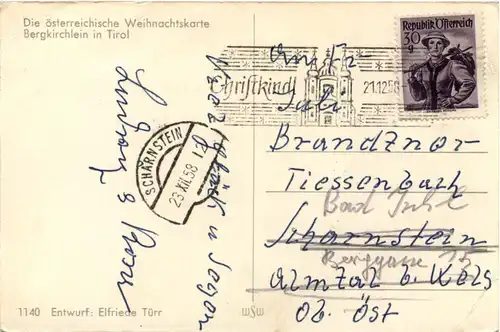 Die österreichische Weihnachtskarte
Bergkirchlein in Tirol
Republik Österreich
30 g
Christkindl
21.12.58
SCHARNSTEIN
23.XII.58
Glück u Segen
Brandznor
Tiessenbach
Bad Ischl
Scharnstein
Berggasse
Almtal b. Wels
Ob. Öst
1140 Entwurf: Elfriede Türr
WSW